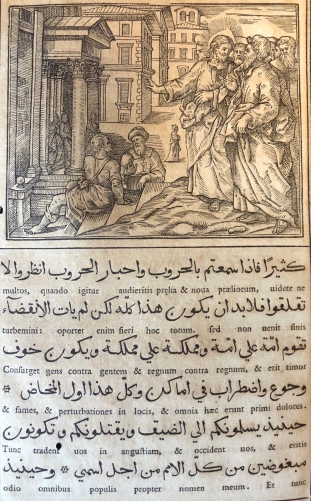 كثيرًا فاذا سمعتم بالحروب واخبار الحروب انظروا لا
multos, quando igitur audieritis prælia & noua præliorum, uidete ne
تقلقوا فلابد ان يكون هذا كلّه لكن لم يات الانقضآء
turbemini: oportet enim fieri hoc totum. sed non uenit finis
تقوم امّة علي امّة ومملكة علي مملكة ويكون خوف
Consurget gens contra gentem & regnum contra regnum, & erit timor
وجوع واضطراب في اماكن وكلّ هذا اول المخاض
& fames, & perturbationes in locis, & omnia hæc erunt primi dolores.
حينيذ يسلمونكم الي الضيف ويقتلونكم وتكونون
Tunc tradent uos in angustiam, & occident uos, & eritis
مبغوضين من كل الامم من اجل اسمي وحينيذ
odio omnibus populis propter nomen meum. Et tunc